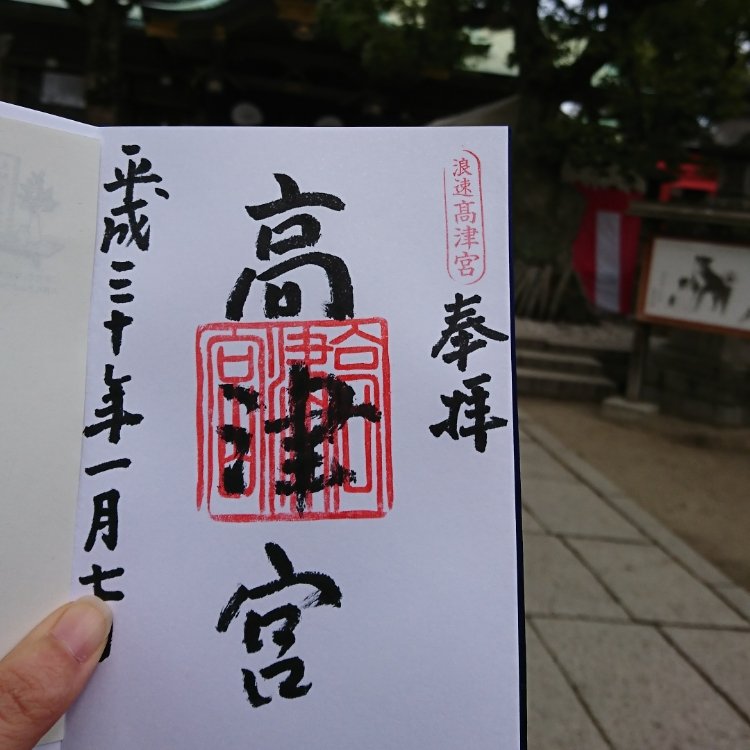 浪速高津宮
奉拝
高津宮
高津宮
平成三十年一月七日